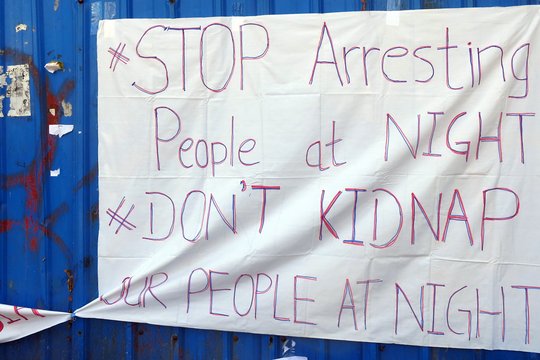 #STOP Arresting
People at NIGHT
#DON'T KIDNAP
OUR PEOPLE AT NIGHT